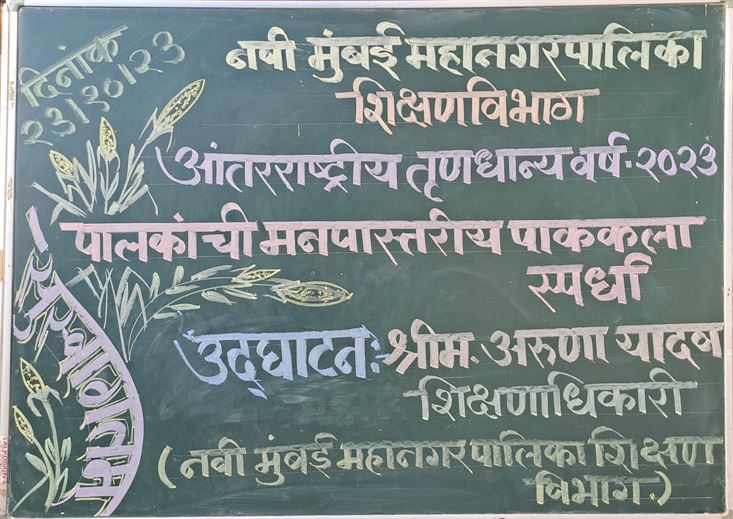 दिनांक
२३/१०/२३
नवी मुंबई महानगरपालिका
शिक्षणविभाग
आंतरराष्ट्रीय तृणधान्य वर्ष-२०२३
पालकांची मनपास्तरीय पाककला
स्पर्धा
उद्घाटनः- श्रीम. अरुणा यादव
शिक्षणाधिकारी
(नवी मुंबई महानगरपालिका शिक्षण
विभाग)
सुस्वागतम